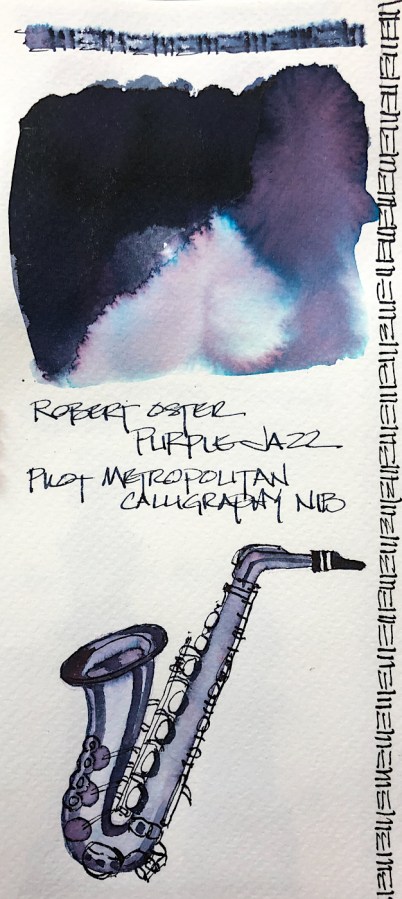 ROBERT OSTER
PURPLE JAZZ
PILOT METROPOLITAN
CALLIGRAPHY NIB